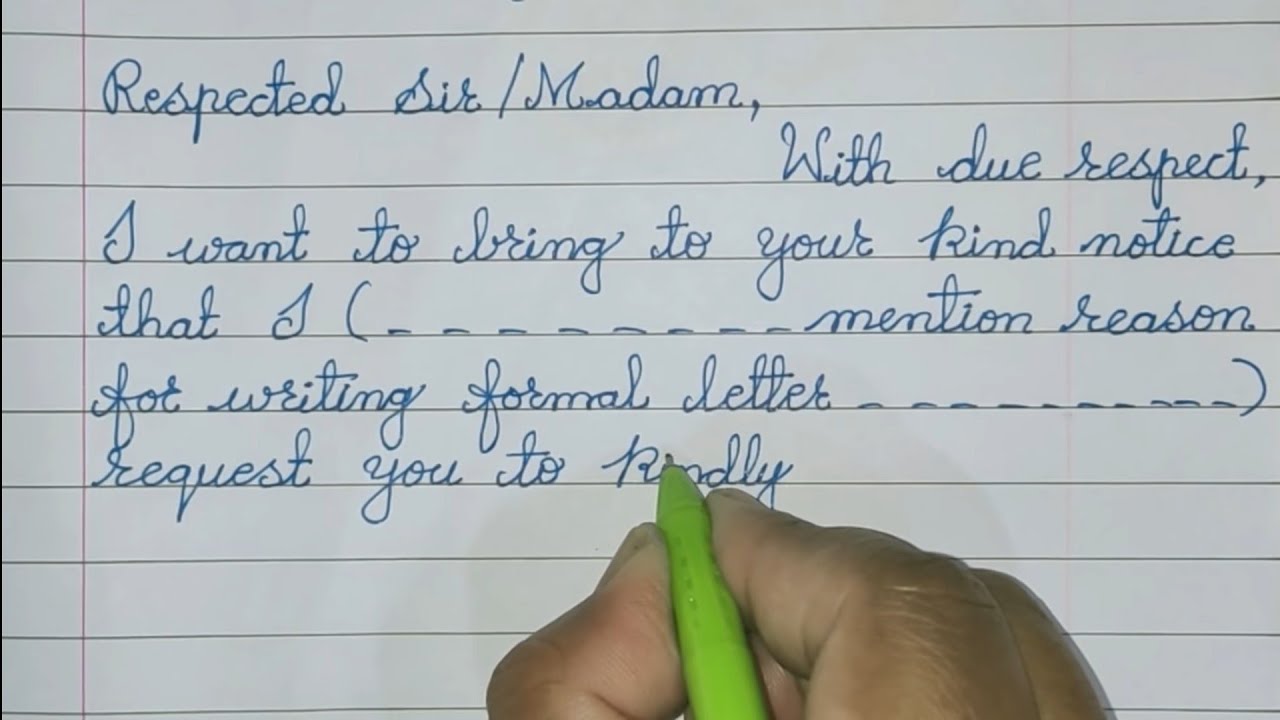 Respected Sir/Madam,
With due respect,
I want to bring to your kind notice
that I (_ _ _ _ _ _ _ _ _ mention reason
for writing formal letter _ _ _ _ _ _ _ _ _ _)
request you to kindly